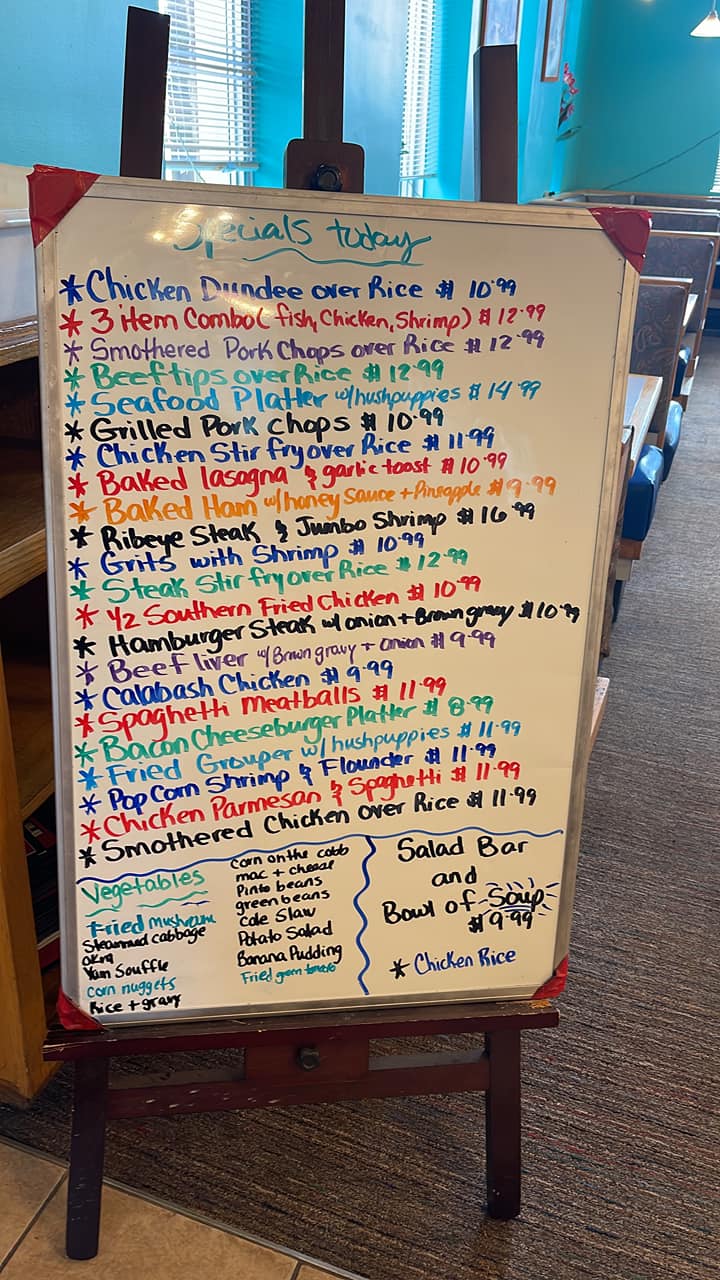 Specials today
* Chicken Dundee over Rice $ 10.99
* 3 item Combo( fish, Chicken, Shrimp) $ 12.99
* Smothered Pork Chops over Rice $ 12.99
* Beef tips over Rice $ 12.99
* Seafood Platter w/hushpuppies $ 14.99
* Grilled Pork Chops $ 10.99
* Chicken Stir fry over Rice $ 11.99
* Baked lasagna & garlic toast $ 10.99
* Baked Ham w/honey sauce + Pineapple $ 9.99
* Ribeye Steak & Jumbo Shrimp $ 16.99
* Grits with Shrimp $ 10.99
* Steak Stir fry over Rice $ 12.99
* 1/2 Southern Fried Chicken $ 10.99
* Hamburger Steak w/ onion + Brown gravy $ 10.99
* Beef liver w/ Brown gravy + onion $ 9.99
* Calabash Chicken $ 9.99
* Spaghetti Meatballs $ 11.99
* Bacon Cheeseburger Platter $ 8.99
* Fried Grouper w/ hushpuppies $ 11.99
* Pop Corn Shrimp & Flounder $ 11.99
* Chicken Parmesan & Spaghetti $ 11.99
* Smothered Chicken over Rice $ 11.99
Vegetables
Fried mushroom
Steammed cabbage
okra
Yam Souffle
corn nuggets
Rice + gravy
Corn on the cobb
mac + cheese
Pinto beans
green beans
Cole Slaw
Potato Salad
Banana Pudding
Fried green tomato
Salad Bar
and
Bowl of Soup
$ 9.99
* Chicken Rice